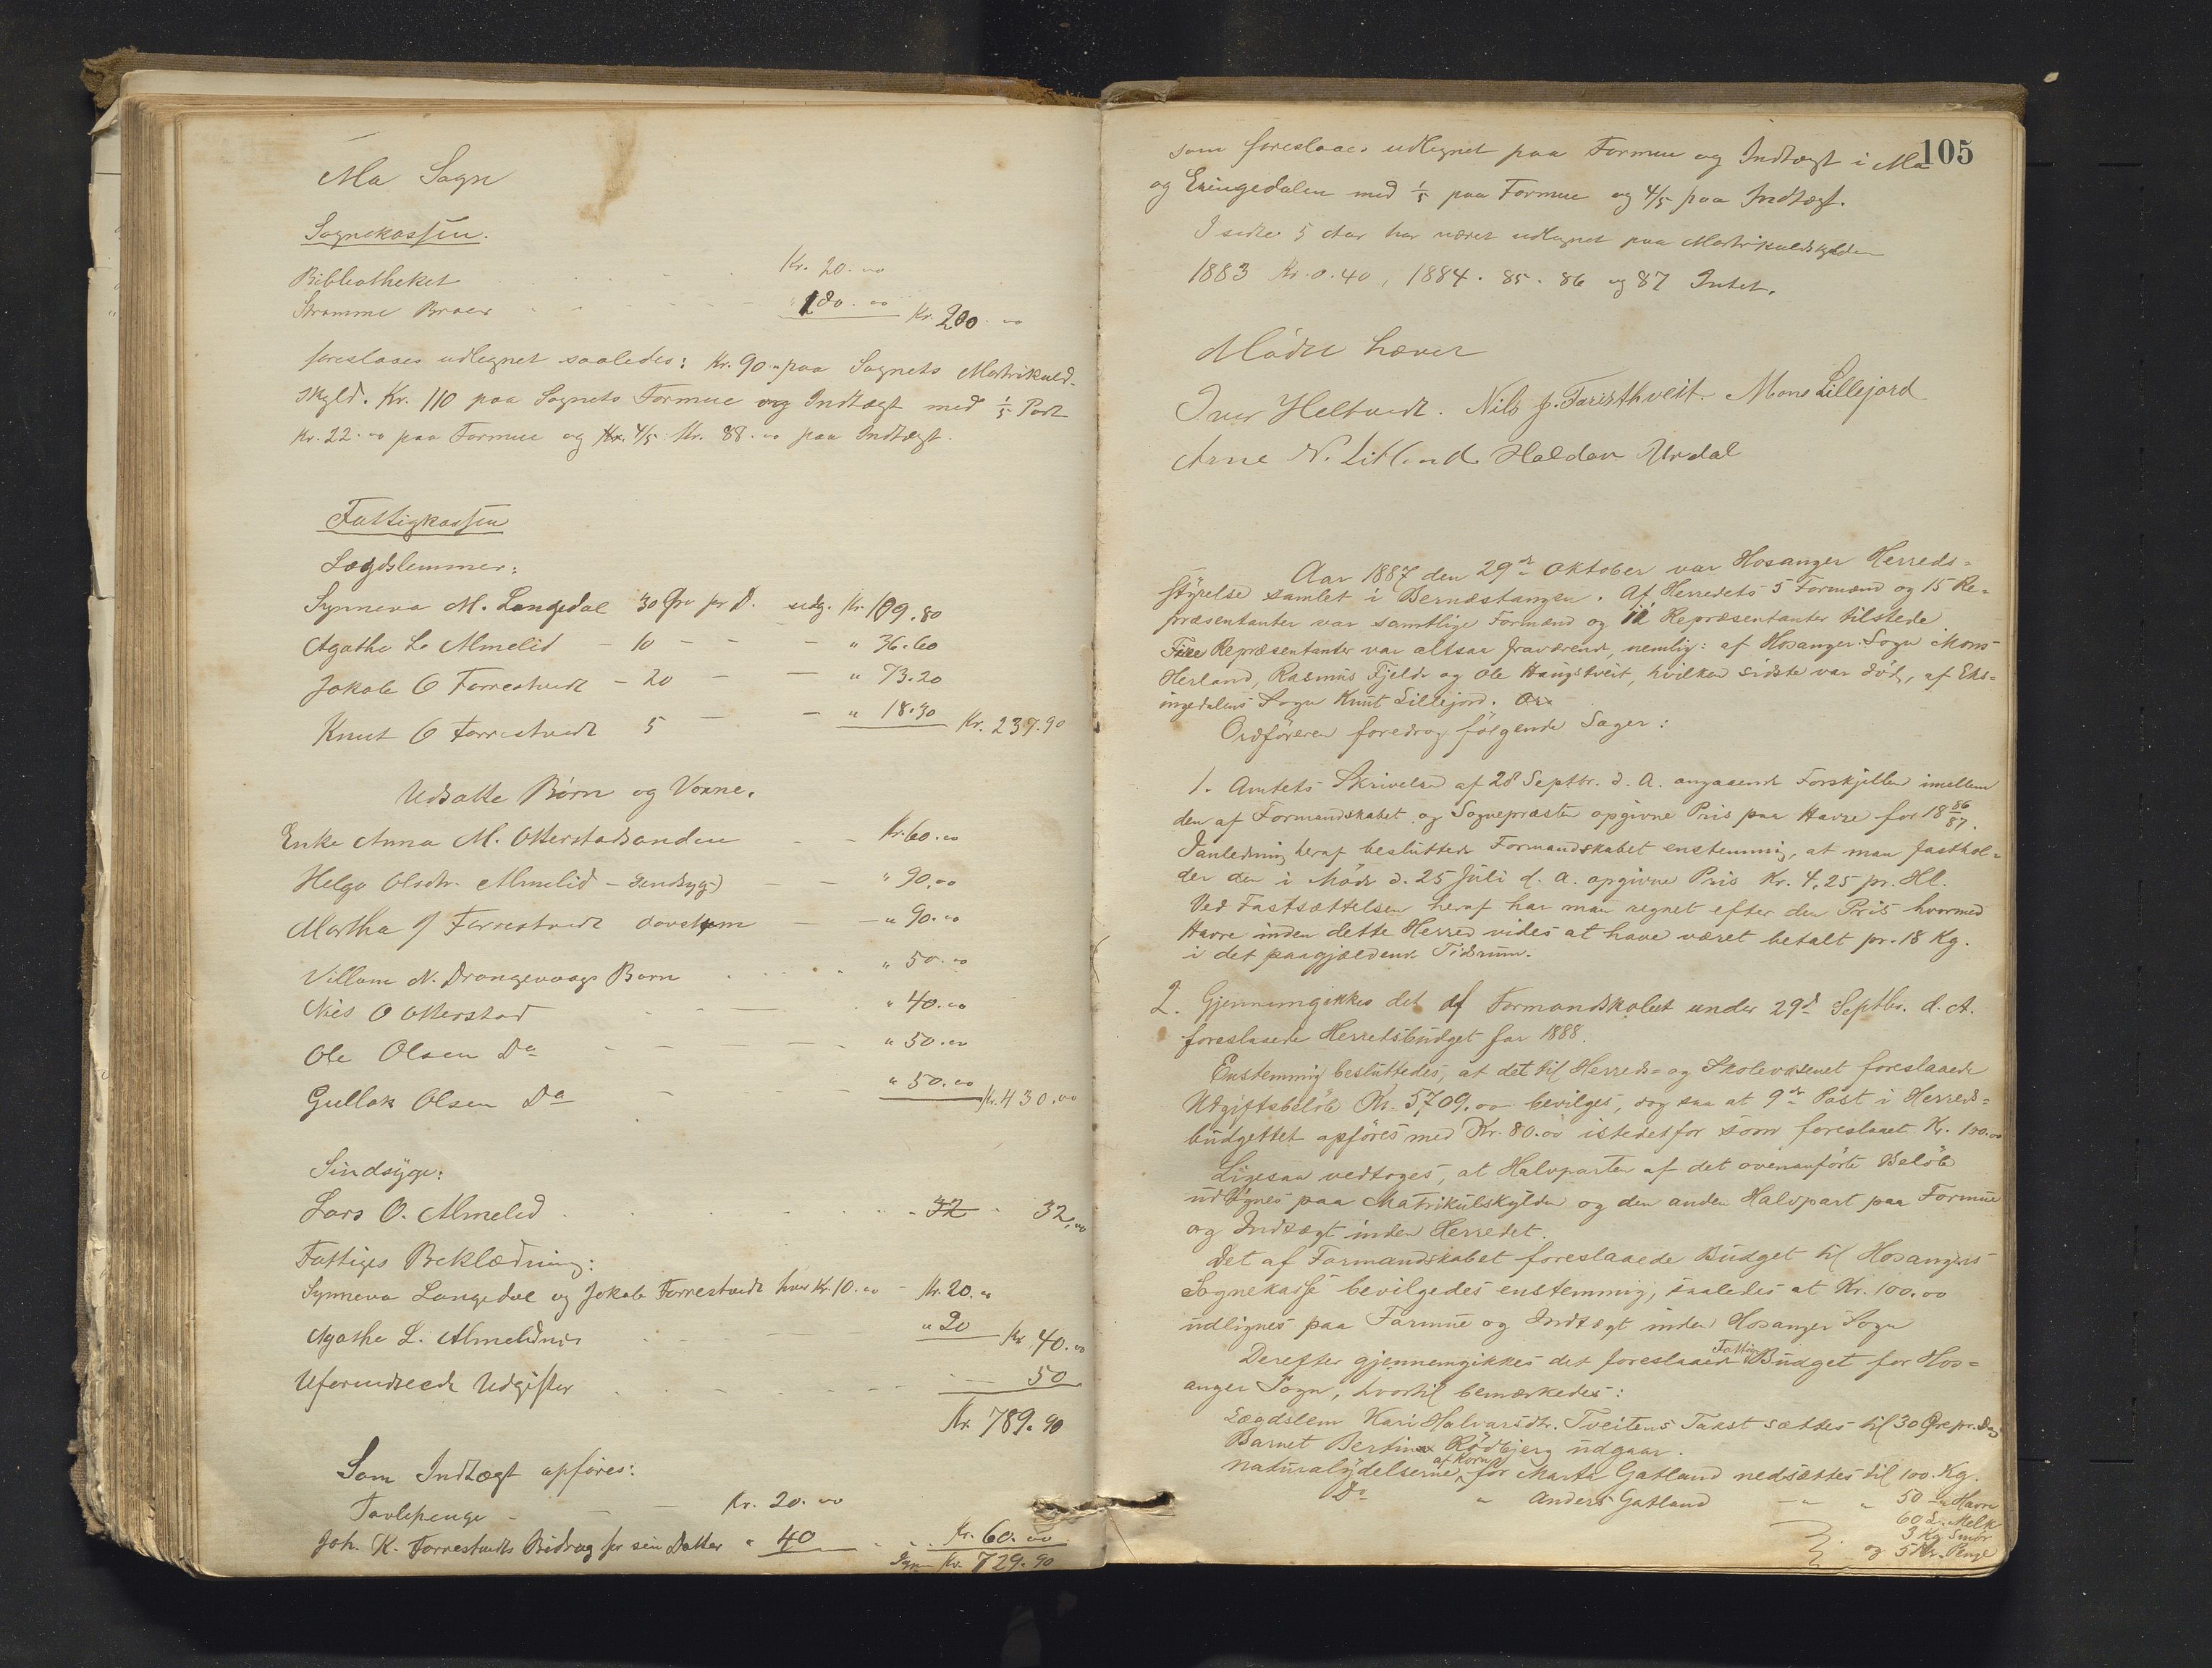 Mo Sogn
Sognekassen.
Bibliotheket Kr. 20.00
Stramme Broer " 180.00 Kr. 200.00
foreslaaes udlignet saaledes: Kr. 90.00 paa Sognets Matrikuls-
skyld. Kr. 110 paa Sognets Formue og Indtægt med 1/5 Part
Kr. 22.00 paa Formue og 4/5: Kr. 88.00 paa Indtægt.
Fattigkassen
Lægdslemmer:
Synneva M. Langedal 30 Øre pr D. udg. Kr 109.80
Agatha L. Almelid - 10 - - - " 36.60
Jakob O Farrestvedt - 20 - - " 73.20
Knut O Farrestvedt 5 - - " 18.30 Kr. 237.90
Udsatte Börn og Voxne.
Enke Anna M. Otterstadsanden - - Kr 60.00
Helga Olsdtr. Almelid - sindsyg) - - " 90.00
Martha J Farrestvedt døvstum - - " 90.00
Villum N. Drangevaags Barn " 50.00
Nils O Otterstad " 40.00
Ole Olsen Do " 50.00
Gullak Olsen Do " 50.00 Kr. 430.00
Sindsyge:
Lars O. Almelid 32 32,00
Fattiges Beklædning:
Synneva Langedal og Jakob Farrestvedt hver Kr. 10.00 - Kr. 20.00
Agatha L. Almelidnes " 20 Kr 40.00
Uforudseede Udgifter 50
Kr. 789.90
Som Indtægt opføres:
Tavlepenge - Kr. 20.00
Joh. K. Farrestvedts Bidrag for sin Datter " 40 Kr. 60.00
Igjen Kr. 729.90
105
som foreslaaes udlignet paa Formue og Indtægt i Mo
og Exingedalen med 1/5 paa Formue og 4/5 paa Indtægt.
I sidste 5 Aar har været udlignet paa Matrikulskylden
1883 Kr. 0.40, 1884. 85. 86 og 87 Intet.
Mødet hævet
Iver Heltvedt. Nils J. Faresthveit. Mons Lillejord
Arne N. Litland Haldor Urdal
Aar 1887 den 29de Oktober var Hosanger Herreds=
styrelse samlet i Bernæstangen. Af Herredets 5 Formænd og 15 Re=
præsentanter var samtlige Formænd og 11 Repræsentanter tilstede
Fire Repræsentanter var altsaa fraværende, nemlig: af Hosanger Sogn Mons
Herland, Rasmus Fjelde og Ole Haugstveit, hvilken sidste var død, af Eks=
ingedalens Sogn Knut Lillejord.
Ordføreren foredrog følgende Sager:
1. Amtets Skrivelse af 28 Septbr. d. A. angaaende Forskjellen imellem
den af Formandskabet og Sognepræsten opgivne Pris paa Havre for 18 86/87.
I anledning heraf besluttede Formandskabet enstemmig, at man fasthol=
der den i Møde d. 25 Juli d. A. opgivne Pris Kr. 4,25 pr. Hl.
Ved Fastsættelsen heraf har man regnet efter den Pris hvormed
Havre inden dette Herred vides at have været betalt pr. 18 Kg.
i det paagjældende Tidsrum.
2. Gjennemgikkes det af Formandskabet under 29d Septbr. d. A.
foreslaaede Herredsbudget for 1888.
Enstemmig besluttedes, at det til Herreds= og Skolevæsenet foreslaaede
Udgiftsbeløb Kr. 5709.00 bevilges, dog saa at 9de Post i Herreds=
budgettet opføres med Kr. 80.00 istedetfor som foreslaaet Kr. 100.00
Ligesaa vedtoges, at Halvparten af det ovenanførte Beløb
udlignes paa Matrikulskylden og den anden Halvpart paa Formue
og Indtægt inden Herredet.
Det af Formandskabet foreslaaede Budget til Hosangers
Sognekasse bevilgedes enstemmig, saaledes at Kr. 100.00
udlignes paa Formue og Indtægt inden Hosanger Sogn
Derefter gjennemgikkes det foreslaaede Fattig Budget for Hos=
anger Sogn, hvortil bemærkedes:
Lægdslem Kari Halvarsdtr. Tveitens Takst sættes til 30 Øre pr. Dag
Barnet Bertina Rødbjerg udgaar.
Naturalydelserne af Korn for Marta Gatland nedsættes til 100 Kg.
Do " Anders Gatland - " " 50 " Havre
60 L. Melk
3 Kg Smør
og 5 Kr. Penge